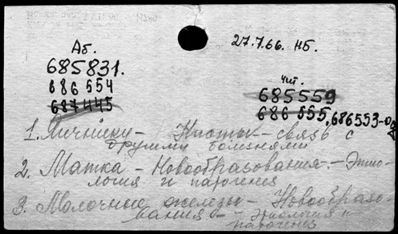 Аб.
27.7.66. нб.
685831.
686 554
687445
чит.
685559
686 555, 686553-
1. Яичники - Кисты - связь с
другими болезнями
2. Матка - Новообразования. - Этио-
логия и патогенез
3. Молочные железы - Новообразо-
вания - Этиология и
патогенез